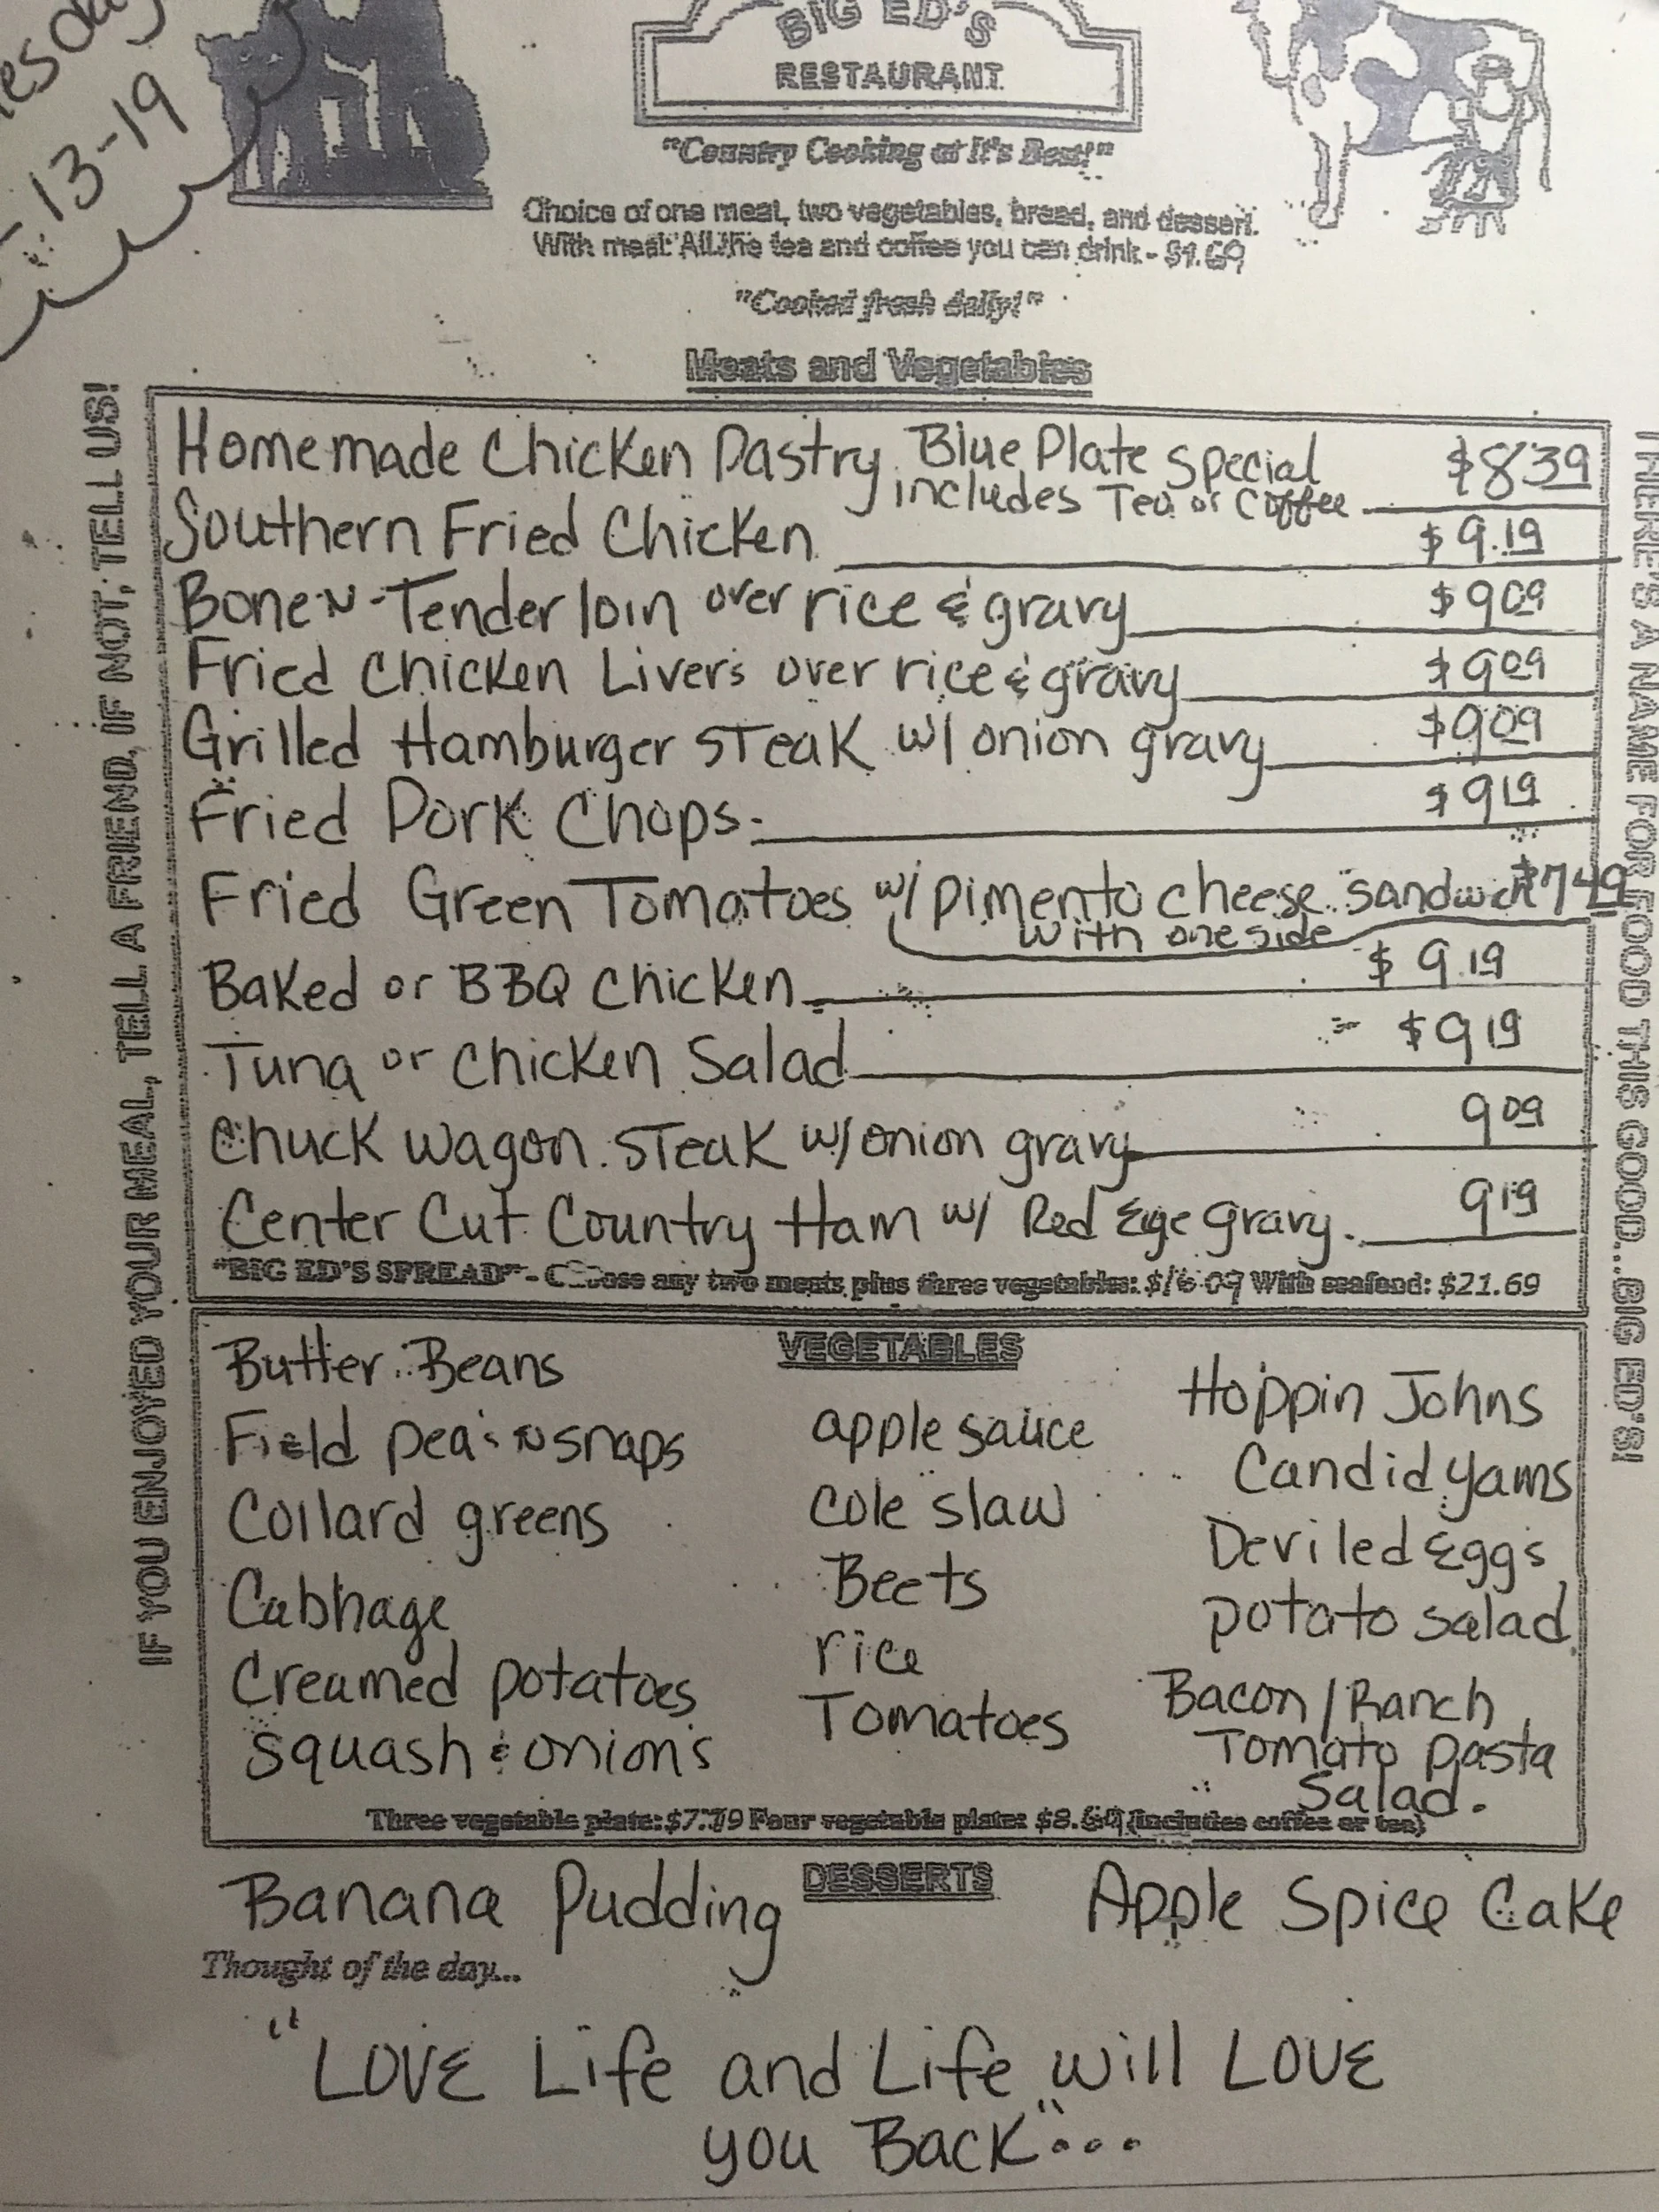 esday
-13-19
BIG ED'S
RESTAURANT
"Country Cooking at It's Best!"
Choice of one meat, two vegetables, bread, and dessert.
With meal: All the tea and coffee you can drink - $1.69
"Cooked fresh daily!"
Meats and Vegetables
Homemade Chicken Pastry Blue Plate Special $8.39
includes Tea or Coffee
Southern Fried Chicken $9.19
Bone N-Tenderloin over rice & gravy $9.09
Fried Chicken Livers over rice & gravy $9.09
Grilled Hamburger Steak w/ onion gravy $9.09
Fried Pork Chops $9.19
Fried Green Tomatoes w/ pimento cheese sandwich $7.49
with one side
Baked or BBQ Chicken $9.19
Tuna or Chicken Salad $9.19
Chuck Wagon Steak w/ onion gravy 9.09
Center Cut Country Ham w/ Red Eye gravy 9.19
"BIG ED'S SPREAD" - Choose any two meats plus three vegetables: $16.09 With seafood: $21.69
IF YOU ENJOYED YOUR MEAL, TELL A FRIEND, IF NOT, TELL US!
THERE'S A NAME FOR FOOD THIS GOOD...BIG ED'S!
VEGETABLES
Butter Beans
Field pea's N snaps
Collard greens
Cabbage
Creamed potatoes
Squash & onions
apple sauce
Cole slaw
Beets
rice
Tomatoes
Hoppin Johns
Candid yams
Deviled Eggs
potato salad
Bacon/Ranch
Tomato Pasta
Salad.
Three vegetable plate: $7.79 Four vegetable plate: $8.69 (includes coffee or tea)
DESSERTS
Banana Pudding Apple Spice Cake
Thought of the day...
"LOVE Life and Life will LOVE
you BACK"...